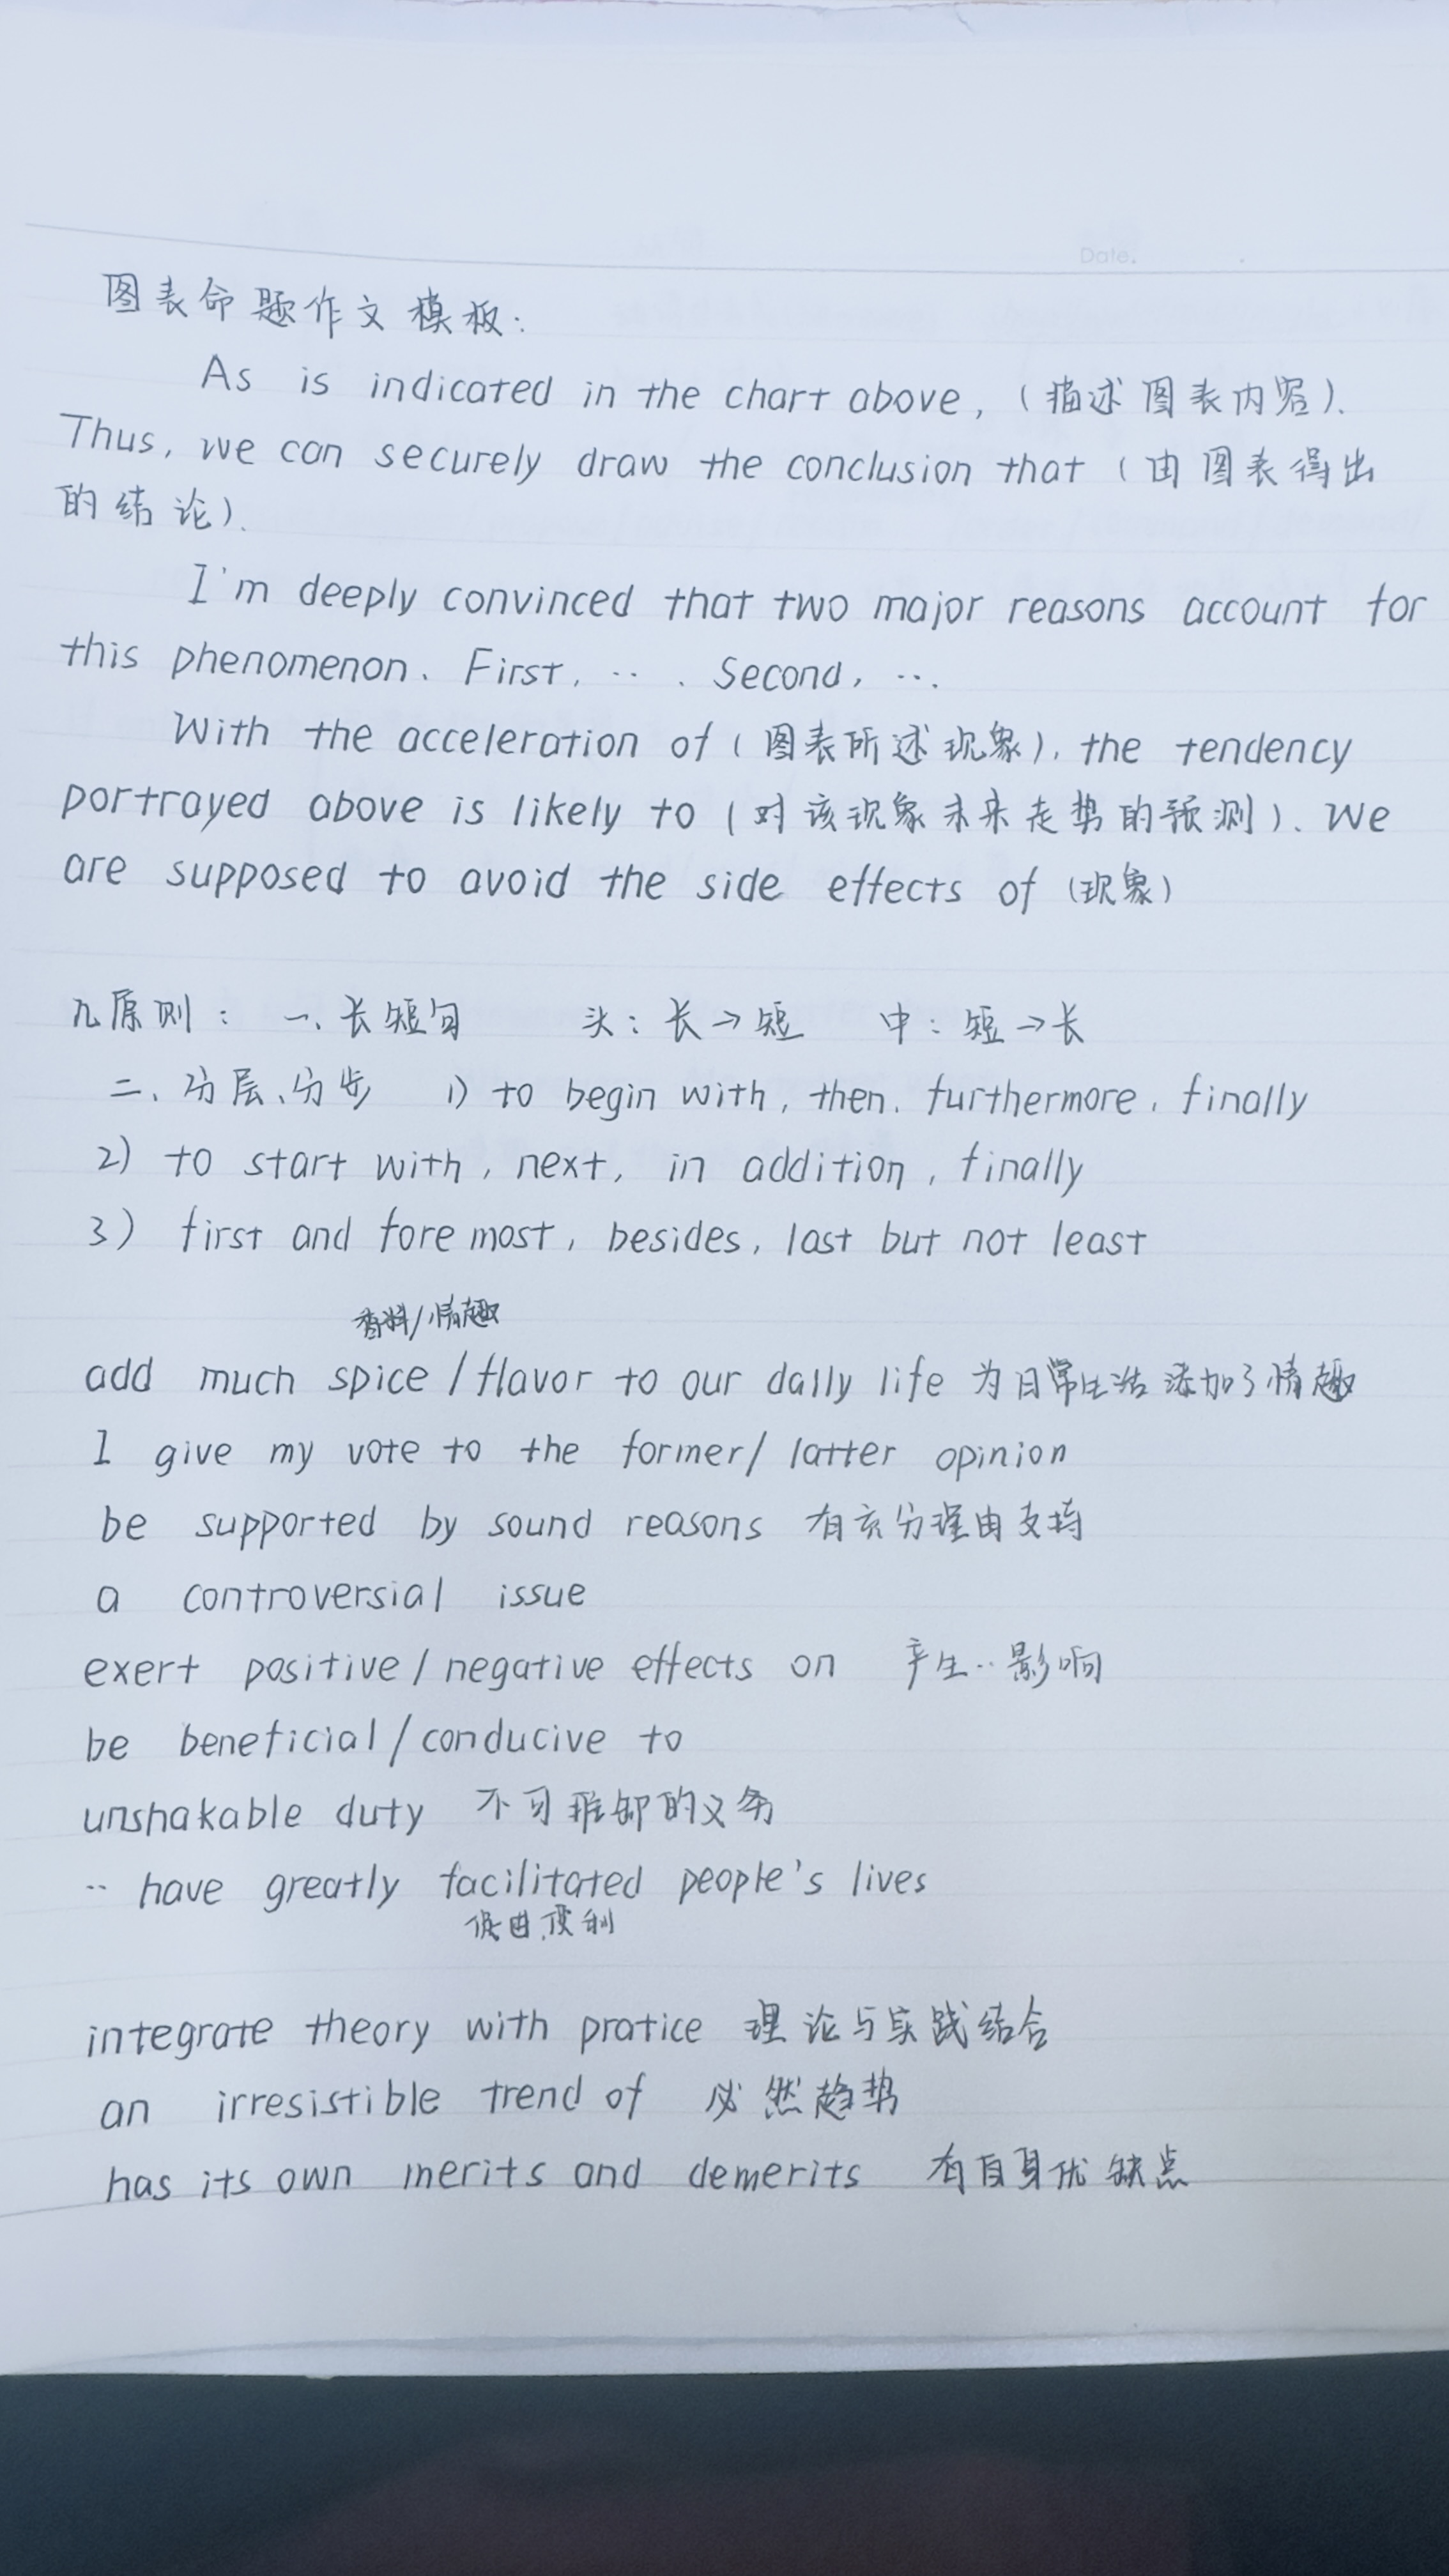 Date.
图表命题作文模板：
As is indicated in the chart above, (描述图表内容).
Thus, we can securely draw the conclusion that (由图表得出
的结论).
I'm deeply convinced that two major reasons account for
this phenomenon. First, ... . Second, ....
With the acceleration of (图表所述现象), the tendency
portrayed above is likely to (对该现象未来走势的预测). We
are supposed to avoid the side effects of (现象)
九原则： 一、长短句 头：长→短 中：短→长
二、分层、分步 1) to begin with, then, furthermore, finally
2) to start with, next, in addition, finally
3) first and foremost, besides, last but not least
香料/情趣
add much spice / flavor to our daily life 为日常生活添加了情趣
I give my vote to the former/ latter opinion
be supported by sound reasons 有充分理由支持
a controversial issue
exert positive / negative effects on 产生..影响
be beneficial / conducive to
unshakable duty 不可推卸的义务
.. have greatly facilitated people's lives
促进、便利
integrate theory with pratice 理论与实践结合
an irresistible trend of 必然趋势
has its own merits and demerits 有自身优缺点